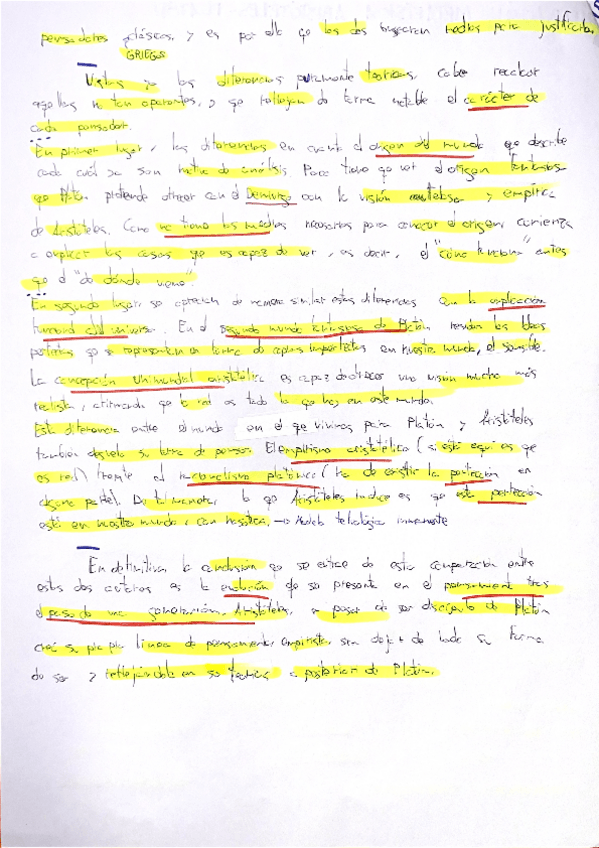 pensadores clásicos, y es por ello qe los dos buscaran modos para justificarlo.
GRIEGOS
Vistas ya las diferencias puramente teóricas, cabe recalcar
aquellas no tan aparentes, y qe reflejan de forma notable el carácter de
cada pensador.
En primer lugar, las diferencias en cuanto al origen del mundo qe describe
cada cuál son motivo de análisis. Poco tiene qe ver el origen fantasioso
qe Platón pretende ofrecer con el Demiurgo con la visión y empírica
de Aristóteles. Como no tiene los medios necesarios para conocer el origen, comienza
a explicar las cosas que es capaz de ver, es decir, el "cómo funciona" antes
qe el "de dónde viene".
En segundo lugar, se aprecian de manera similar estas diferencias con la explicación
del universo. En el segundo mundo fantasioso de Platón las Ideas
perfectas qe se representan en forma de copias imperfectas en nuestro mundo, el sensible.
La concepción unimundal aristotélica es capaz de ofrecer una visión mucho más
realista, afirmando qe lo real es todo lo qe hay en este mundo.
Esta diferencia entre el mundo en el qe vivimos para Platón y Aristóteles
también desvela su forma de pensar. El empirismo aristotélico (si está aquí es qe
es real) frente al racionalismo platónico (ha de existir la perfección en
alguna parte). De tal manera, lo qe Aristóteles indica es qe esta perfección
está en nuestro mundo, con nosotros. → Modelo teleológico inmanente
En definitiva la conclusión qe se extrae de esta comparación entre
estos dos autores es la evolución qe se presenta en el pensamiento tras
el paso de una generación. Aristóteles, a pesar de ser discípulo de Platón
creó su propia línea de pensamiento, empirista, sin dejar de lado su forma
de ser y reflejándola en su teorías a posteriori de Platón.